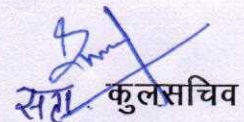 सहा. कुलसचिव